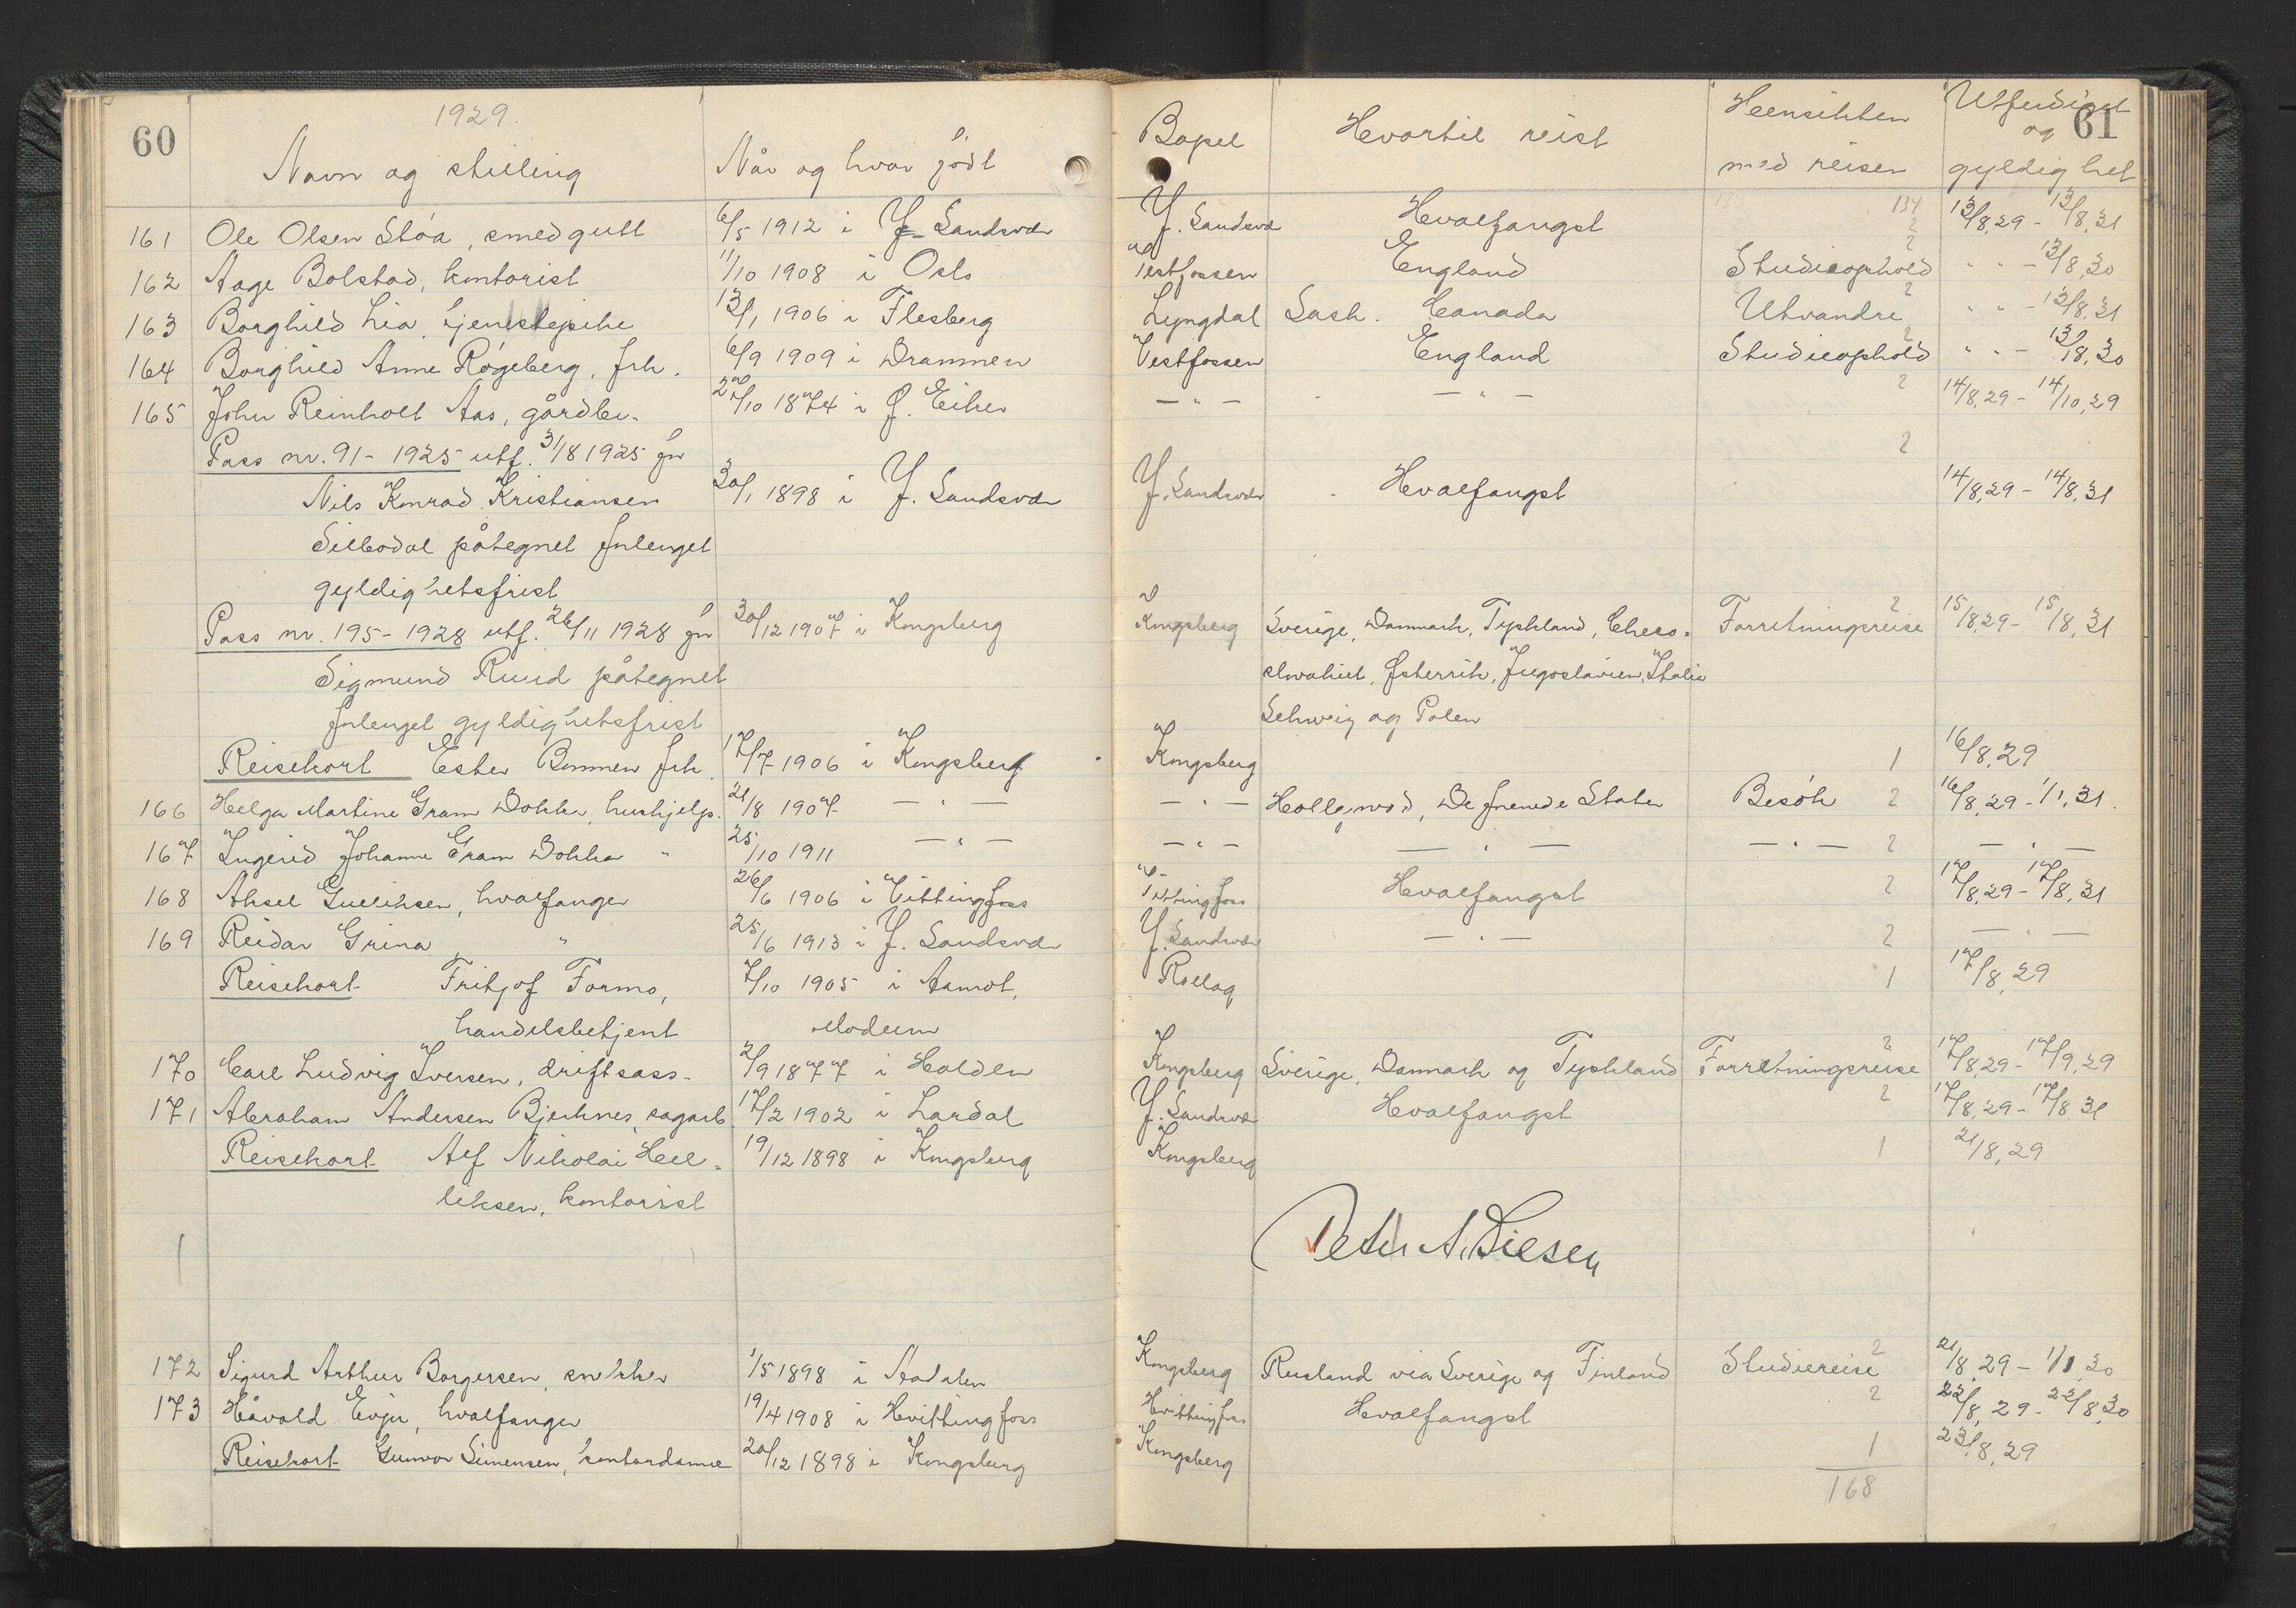 60 1929. 61
Navn og stilling Når og hvor født Bopel Hvortil reist Hensikten med reisen Utferdiget og gyldighet
134
161 Ole Olsen Stóa, smedgutt 6/5 1912 i Y. Sandsvær Y. Sandsvær Hvalfangst 2 13/8.29 - 13/8.31
162 Aage Bolstad, kontorist 11/10 1908 i Oslo Vestfossen England Studieophold 2 " " - 13/8.30
163 Borghild Lia, tjenestepike 13/1 1906 i Flesberg Lyngdal Sask. Canada Utvandre 2 " " - 13/8.31
164 Borghild Anne Røgeberg, frk. 6/9 1909 i Drammen Vestfossen England Studieophold 2 " " - 13/8.30
165 John Reinholt Aas, gårdbr. 27/10 1874 i Ø. Eiker — " — — " — 2 14/8.29 - 14/10.29
Pass nr. 91 - 1925 utf. 31/8 1925 for 2
Nils Konrad Kristiansen 30/1 1898 i Y. Sandsvær Y. Sandsvær Hvalfangst 14/8.29 - 14/8.31
påtegnet forlenget
gyldighetsfrist
Pass nr. 195 - 1928 utf. 26/11 1928 for 30/12 1907 i Kongsberg Kongsberg Sverige, Danmark, Tyskland, Checo- Forretningsreise 2 15/8.29 - 15/8.31
Sigmund Ruud påtegnet slovakiet, Østerrik, Jugoslavien, Italie
forlenget gyldighetsfrist Schweiz og Polen
Reisekort Ester Bommen frk. 17/7 1906 i Kongsberg Kongsberg 1 16/8.29
166 Helga Martine Gram Dokka, hushjelp. 21/8 1907 — " — — " — Hollywood, De forenede Stater Besøk 2 16/8.29 - 1/1.31.
167 Ingerid Johanne Gram Dokka " 25/10 1911 — " — — " — — " — — " — 2 — " —
168 Aksel Gulliksen, hvalfanger 26/6 1906 i Vittingfoss Vittingfoss Hvalfangst 2 17/8.29 - 17/8.31
169 Reidar Grina " 25/6 1913 i Y. Sandsvær Y. Sandsvær — " — 2 — " —
Reisekort Fritjof Formo, 7/10 1905 i Aamot, Rollag 1 17/8.29
handelsbetjent Modum
170 Carl Ludvig Iversen, driftsass. 2/9 1877 i Halden Kongsberg Sverige, Danmark og Tyskland Forretningsreise 2 17/8.29 - 17/9.29
171 Abraham Andersen Bjerknes, sagarb. 17/2 1902 i Lardal Y. Sandsvær Hvalfangst 2 17/8.29 - 17/8.31
Reisekort Alf Nikolai Hel- 19/12 1898 i Kongsberg Kongsberg 1 21/8.29
liksen, kontorist
Peter A. Diesen
172 Sigurd Arthur Borgersen, snekker 1/5 1898 i Aadalen Kongsberg Rusland via Sverige og Finland Studiereise 2 21/8.29 - 1/1.30
173 Håvald Evju, hvalfanger 19/4 1908 i Hvittingfoss Hvittingfoss Hvalfangst 2 22/8.29 - 22/8.30
Reisekort Gunvor Simensen, kontordame 20/12 1898 i Kongsberg Kongsberg 1 23/8.29
168